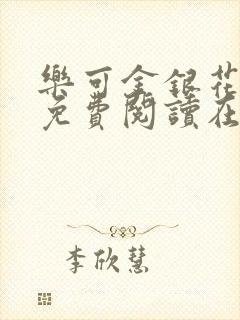 樂可金銀花
免費閱讀在
李欣慧